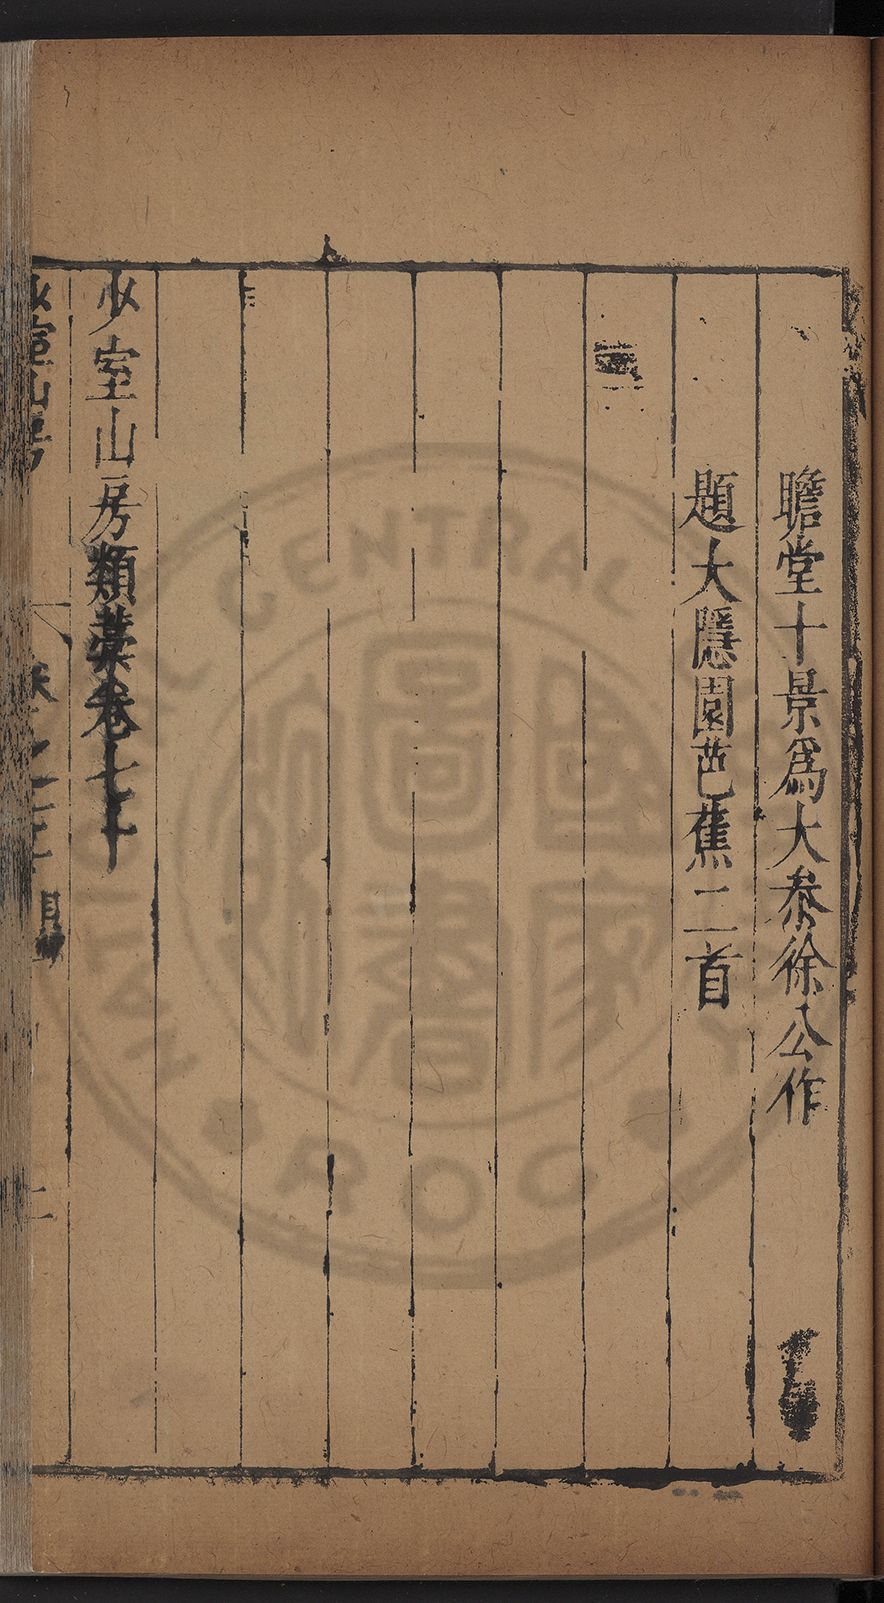 瞻堂十景爲大叅徐公作
題大隱園芭蕉二首
少室山房類藁卷七十
少室山房